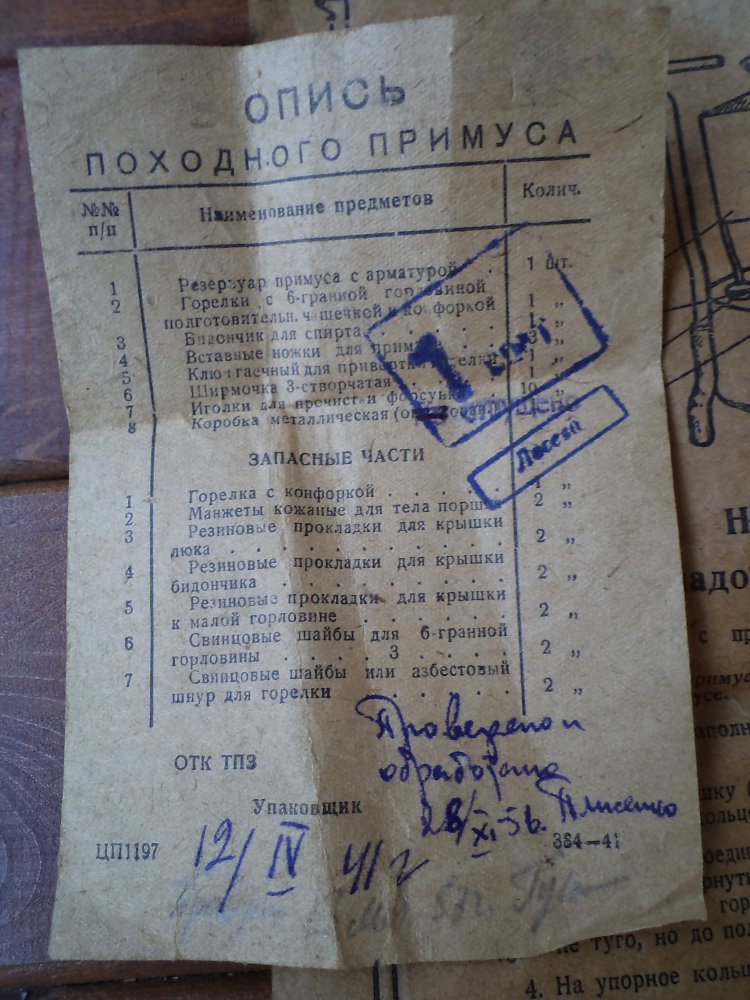 ОПИСЬ
ПОХОДНОГО ПРИМУСА
№№ п/п Наименование предметов Колич.
1 Резервуар примуса с арматурой . . 1 шт.
2 Горелки с 6-гранной горловиной
подготовительн. чашечкой и конфоркой 1 „
3 Бидончик для спирта . . . . . 1 „
4 Вставные ножки для примуса . . 3 „
5 Ключ гаечный для привертки горелки 1 „
6 Ширмочка 3-створчатая . . . . 1 „
7 Иголки для прочистки форсунки 10 „
8 Коробка металлическая
ЗАПАСНЫЕ ЧАСТИ
1 Горелка с конфоркой . . . . . 1 „
2 Манжеты кожаные для тела поршня 2 „
3 Резиновые прокладки для крышки
люка . . . . . . . . . . 2 „
4 Резиновые прокладки для крышки
бидончика . . . . . . . . 2 „
5 Резиновые прокладки для крышки
к малой горловине . . . . . 2 „
6 Свинцовые шайбы для 6-гранной
горловины . . . . 3 . . . . 2 „
7 Свинцовые шайбы или азбестовый
шнур для горелки . . . . 2 „
Проверено и
обработано
28/XI-56.
ОТК ТПЗ
Упаковщик
ЦП1197
12/IV 41 г
384—41
57г.
Лосева
4. На упорное кольц
туго, но до по